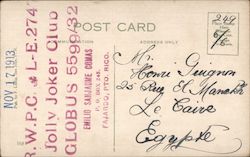 249
POST CARD
ADDRESS ONLY
NOV 17 1913
R.W.P.C. L-E.274
Jolly Joker Club
GLOBUS 5599/32
EMILIO SANJAUME COMAS
P. O. BOX
FAJARDO, PTO. RICO.
Mr.
Henri Guignon
25 Rue El Manakh
Le Caire
Egypte